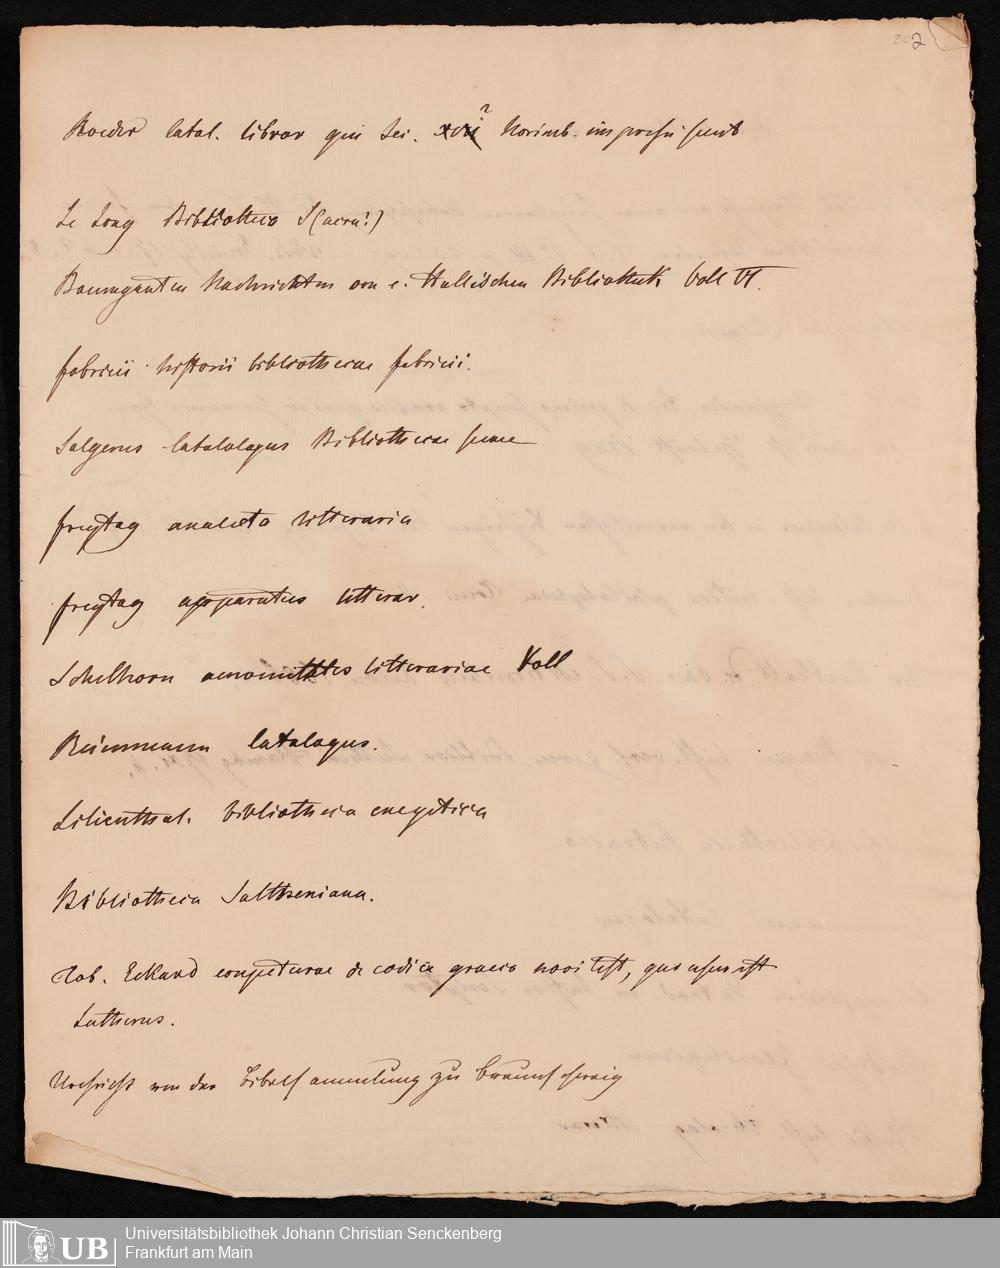 202
Roeder Catal. libror qui Sei. xvii ? Norimb. impressi sunt
Le Long Bibliotheca S(acra?)
Baumgarten Nachrichten von e. Hallischen Bibliothek Voll VI.
fabricii historii bibliothecae fabricii.
Salgerus Catalalagus Bibliothecae suae
freytag analecta litteraria
freytag apparatus litterar.
Schelhorn amoenitates litterariae Voll
Rüumann Catalagus.
Lilienthal. bibliotheca exegetica
Bibliotheca Salthseniana.
Tob. Eckard conjecturae de codice graeco novi test, quo usus est
Lutherus.
Nachricht von der Bibelsammlung zu Braunschweig
UB
Universitätsbibliothek Johann Christian Senckenberg
Frankfurt am Main